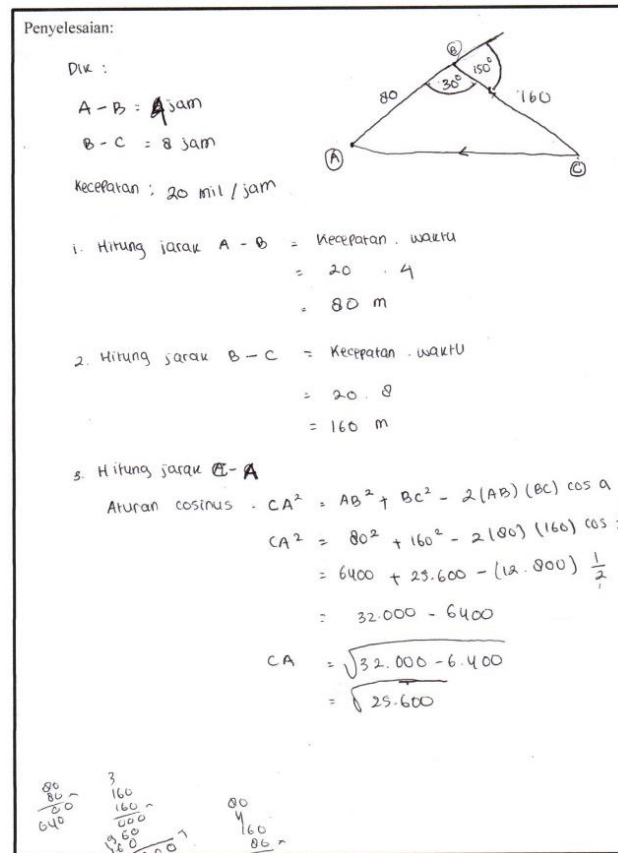 Penyelesaian:
Dik :
A - B = 4 jam
B - C = 8 jam
Kecepatan : 20 mil / jam
B
80
30°
150°
160
A
C
1. Hitung jarak A - B = Kecepatan . waktu
= 20 . 4
= 80 m
2. Hitung jarak B - C = Kecepatan . waktu
= 20 . 8
= 160 m
3. Hitung jarak C - A
Aturan cosinus . CA² = AB² + BC² - 2(AB) (BC) cos a
CA² = 80² + 160² - 2(80) (160) cos
= 6400 + 25.600 - (12.800) 1/2
= 32.000 - 6400
CA = √32.000 - 6.400
= √25.600
80
80
00
640
3
160
160
000
960
80
160